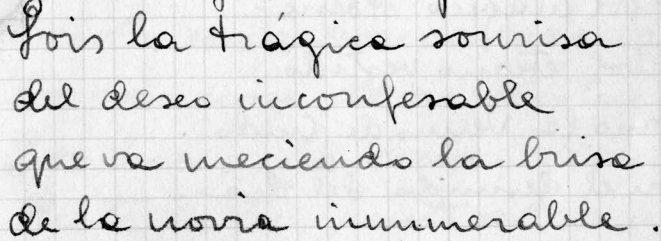 Sois la trágica sonrisa
del deseo inconfesable
que va meciendo la brisa
de la novia innumerable.